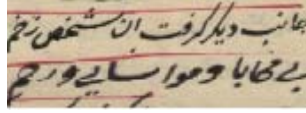 جانب دیکر کرفت ان شخص زخم
بی محابا و مواسایی و رحم